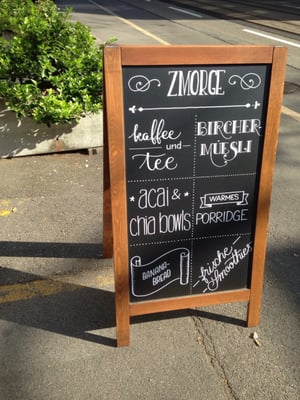 ZMORGE
kaffee
und
tee
BIRCHER
MÜESLI
acai &
chia bowls
WARMES
PORRIDGE
BANANA-
BREAD
frische
Smoothies